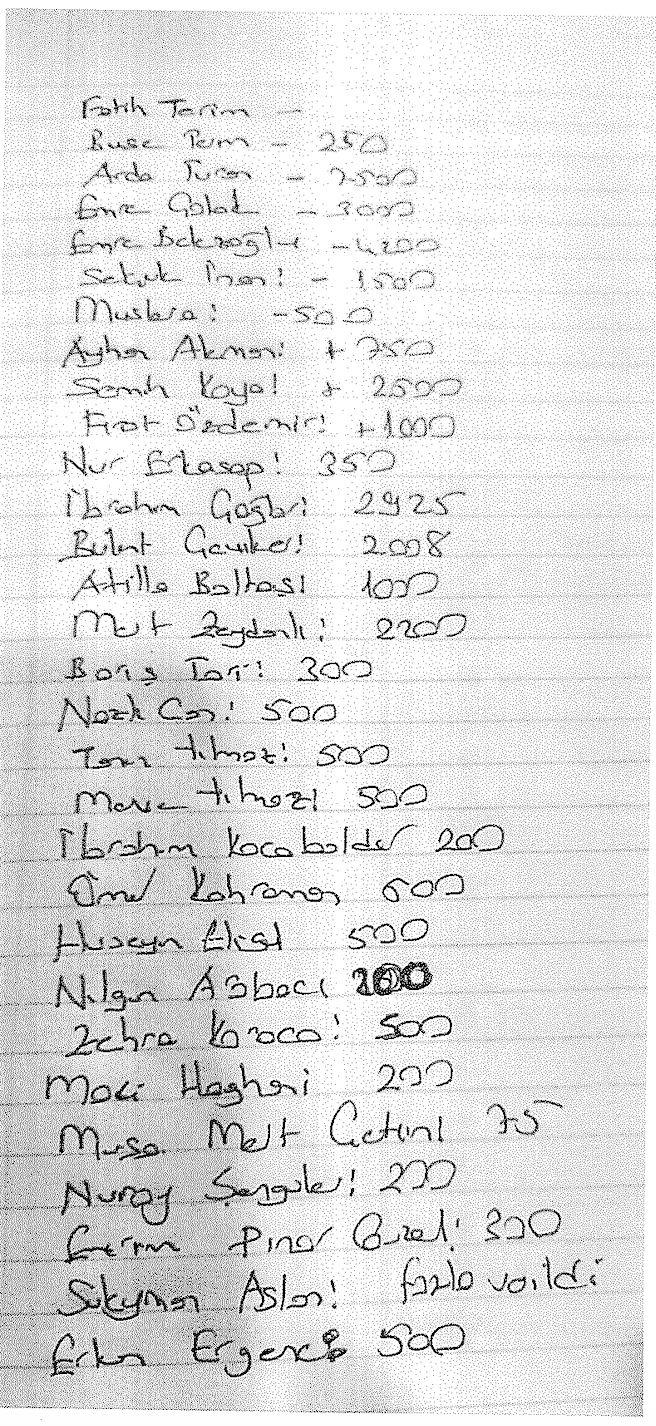 Fatih Terim -
Buse Terim - 250
Arda Turan - 7500
Emre Çolak - 3000
Emre Belezoğlu - 4200
Selçuk İnan: - 1500
Muslera: - 500
Ayhan Akman: + 750
Semih Kaya: + 2500
Fırat Özdemir: +1000
Nur Erkasap: 350
İbrahim Çağları 2925
Bülent Çeviker: 2008
Atilla Baltaş: 1000
Mert Zeydanlı: 2200
Barış Tarı: 300
Nazlı Can: 500
Tanın Yılmaz: 500
Merve Yılmaz: 500
İbrahim Kocabalder 200
Ömer Kahraman 600
Hüseyin Eligül 500
Nilgün Ağbacı 200
Zehra Karaca: 500
Maci Haghani 200
Musa Mert Çetin: 75
Nuray Şengüler: 200
Pınar Güzel: 300
Süleyman Aslan: fazla
Erkan Ergenci 500